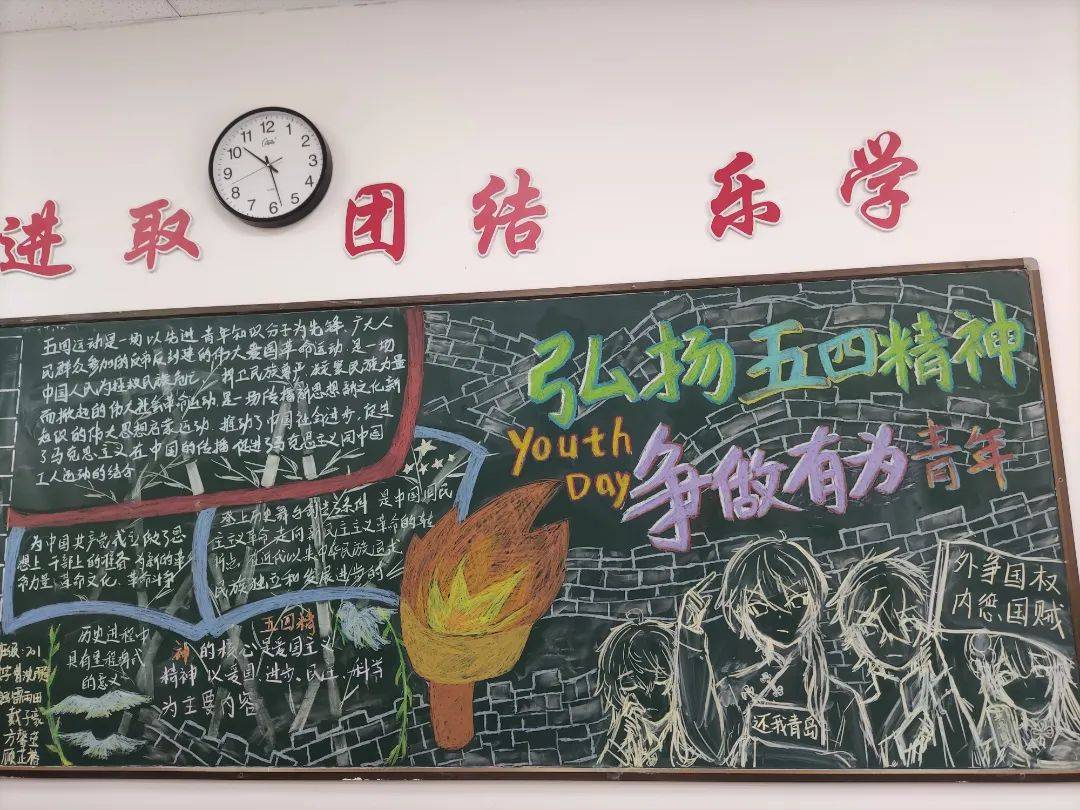 进取 团结 乐学
12
1
2
3
4
5
6
7
8
9
10
11
五四运动是一场以先进青年知识分子为先锋、广大人
民群众参加的反帝反封建的伟大爱国革命运动,是一场
中国人民为拯救民族危亡 捍卫民族尊严 凝聚民族力量
而掀起的伟大社会革命运动 是一场传播新思想新文化新
知识的伟大思想启蒙运动,推动了中国社会进步,促进
了马克思主义在中国的传播 促进了马克思主义同中国
工人运动的结合
为中国共产党成立做了思
想上干部上的准备 为新的革
命力量、革命文化、革命斗争
登上历史舞台创造了条件 是中国旧民
主主义革命走向新民主主义革命的转
折点,在近代以来中华民族追求
民族独立和发展进步的
历史进程中
具有里程碑式
的意义
五四精
神的核心是爱国主义
精神 以爱国、进步、民主、科学
为主要内容
班级:701
弘扬五四精神
Youth
Day
争做有为青年
外争国权
内惩国贼
还我青岛